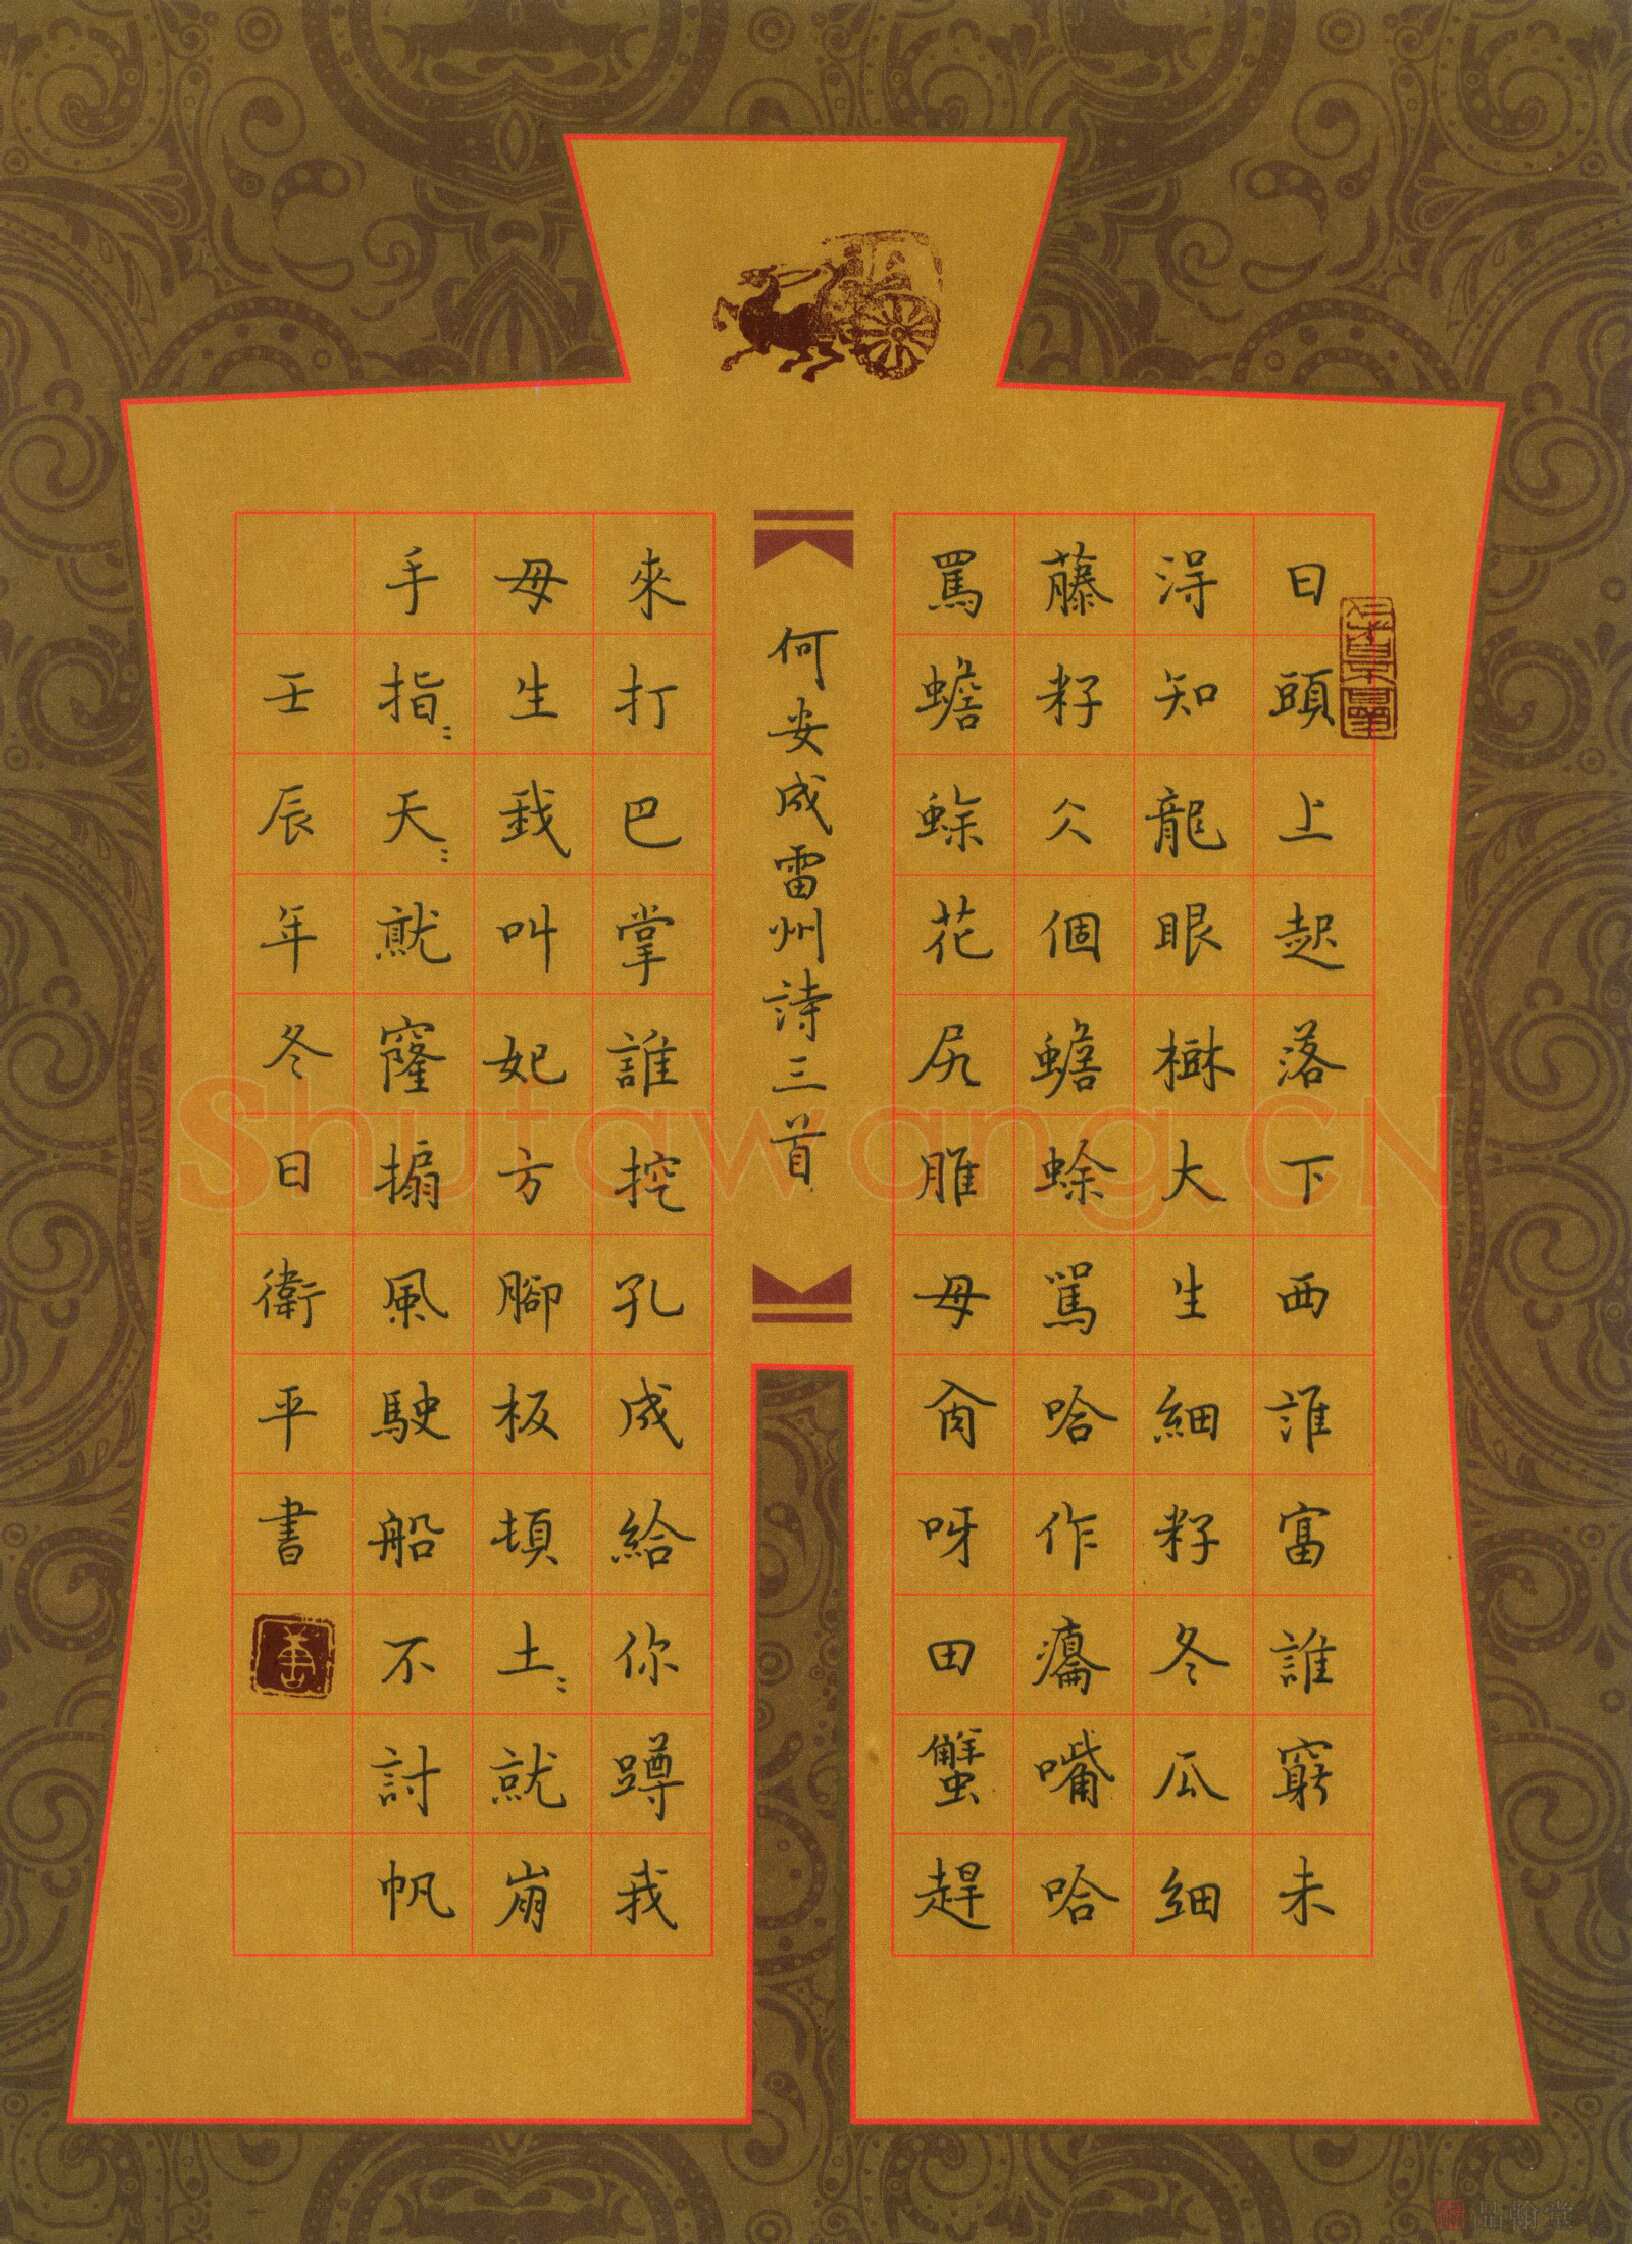 日頭上起落下西誰富誰窮未
淂知龍眼樹大生細籽冬瓜細
藤籽仌個蟾蜍駡哈作癟嘴哈
罵蟾蜍花尻脽母肏呀田蟹趕
何安成雷州詩三首
來打巴掌誰挖孔成給你蹲我
母生我叫妃方腳板頓土〻就崩
手指〻天〻就窿搧風駛船不討帆
壬辰年冬日衛平書
Shufawang.CN
品翰堂